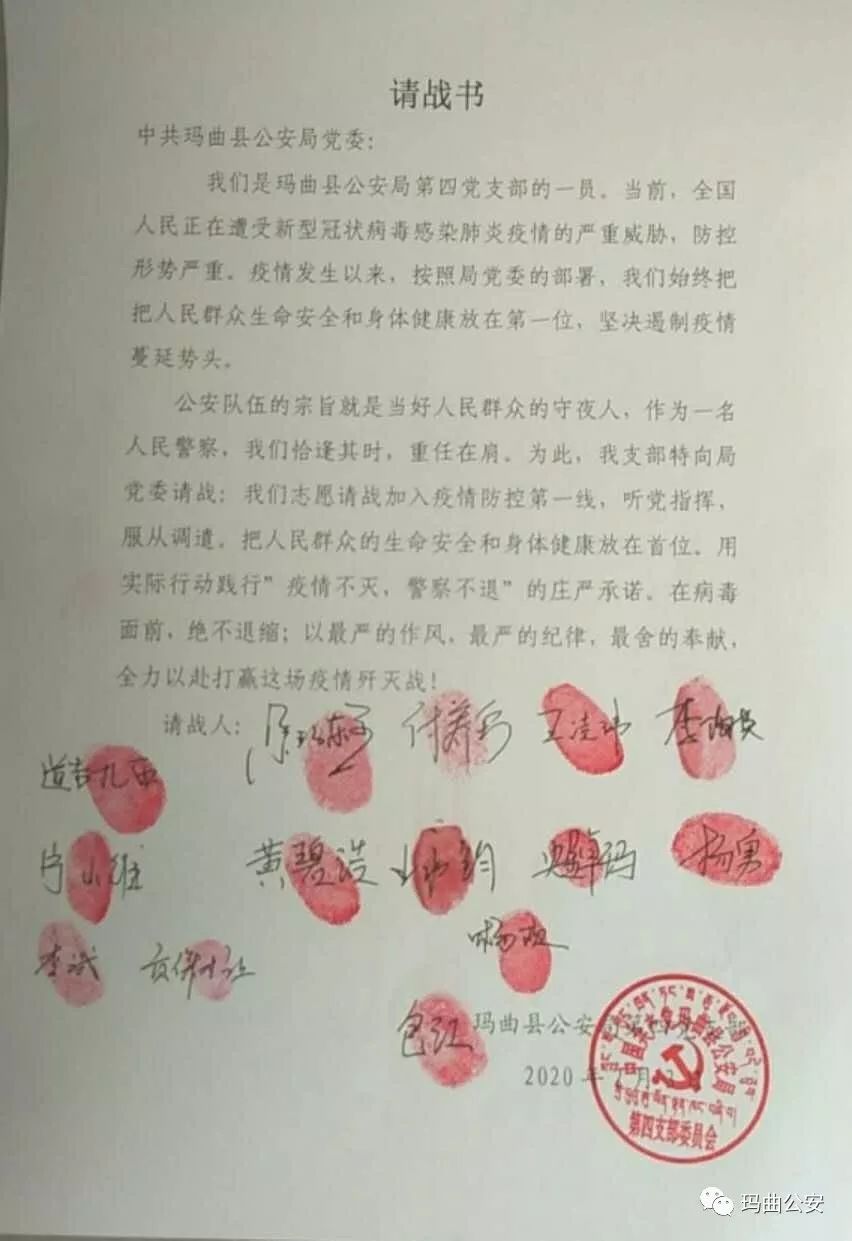 请战书
中共玛曲县公安局党委：
我们是玛曲县公安局第四党支部的一员。当前，全国
人民正在遭受新型冠状病毒感染肺炎疫情的严重威胁，防控
形势严重。疫情发生以来，按照局党委的部署，我们始终把
把人民群众生命安全和身体健康放在第一位，坚决遏制疫情
蔓延势头。
公安队伍的宗旨就是当好人民群众的守夜人，作为一名
人民警察，我们恰逢其时，重任在肩。为此，我支部特向局
党委请战：我们志愿请战加入疫情防控第一线，听党指挥，
服从调遣。把人民群众的生命安全和身体健康放在首位。用
实际行动践行"疫情不灭，警察不退"的庄严承诺。在病毒
面前，绝不退缩；以最严的作风，最严的纪律，最舍的奉献，
全力以赴打赢这场疫情歼灭战！
请战人：
黄碧浩 杨勇
李斌
包红 玛曲县公安局第
2020 年 月
中国共产党玛曲县公安局
第四支部委员会
玛曲公安